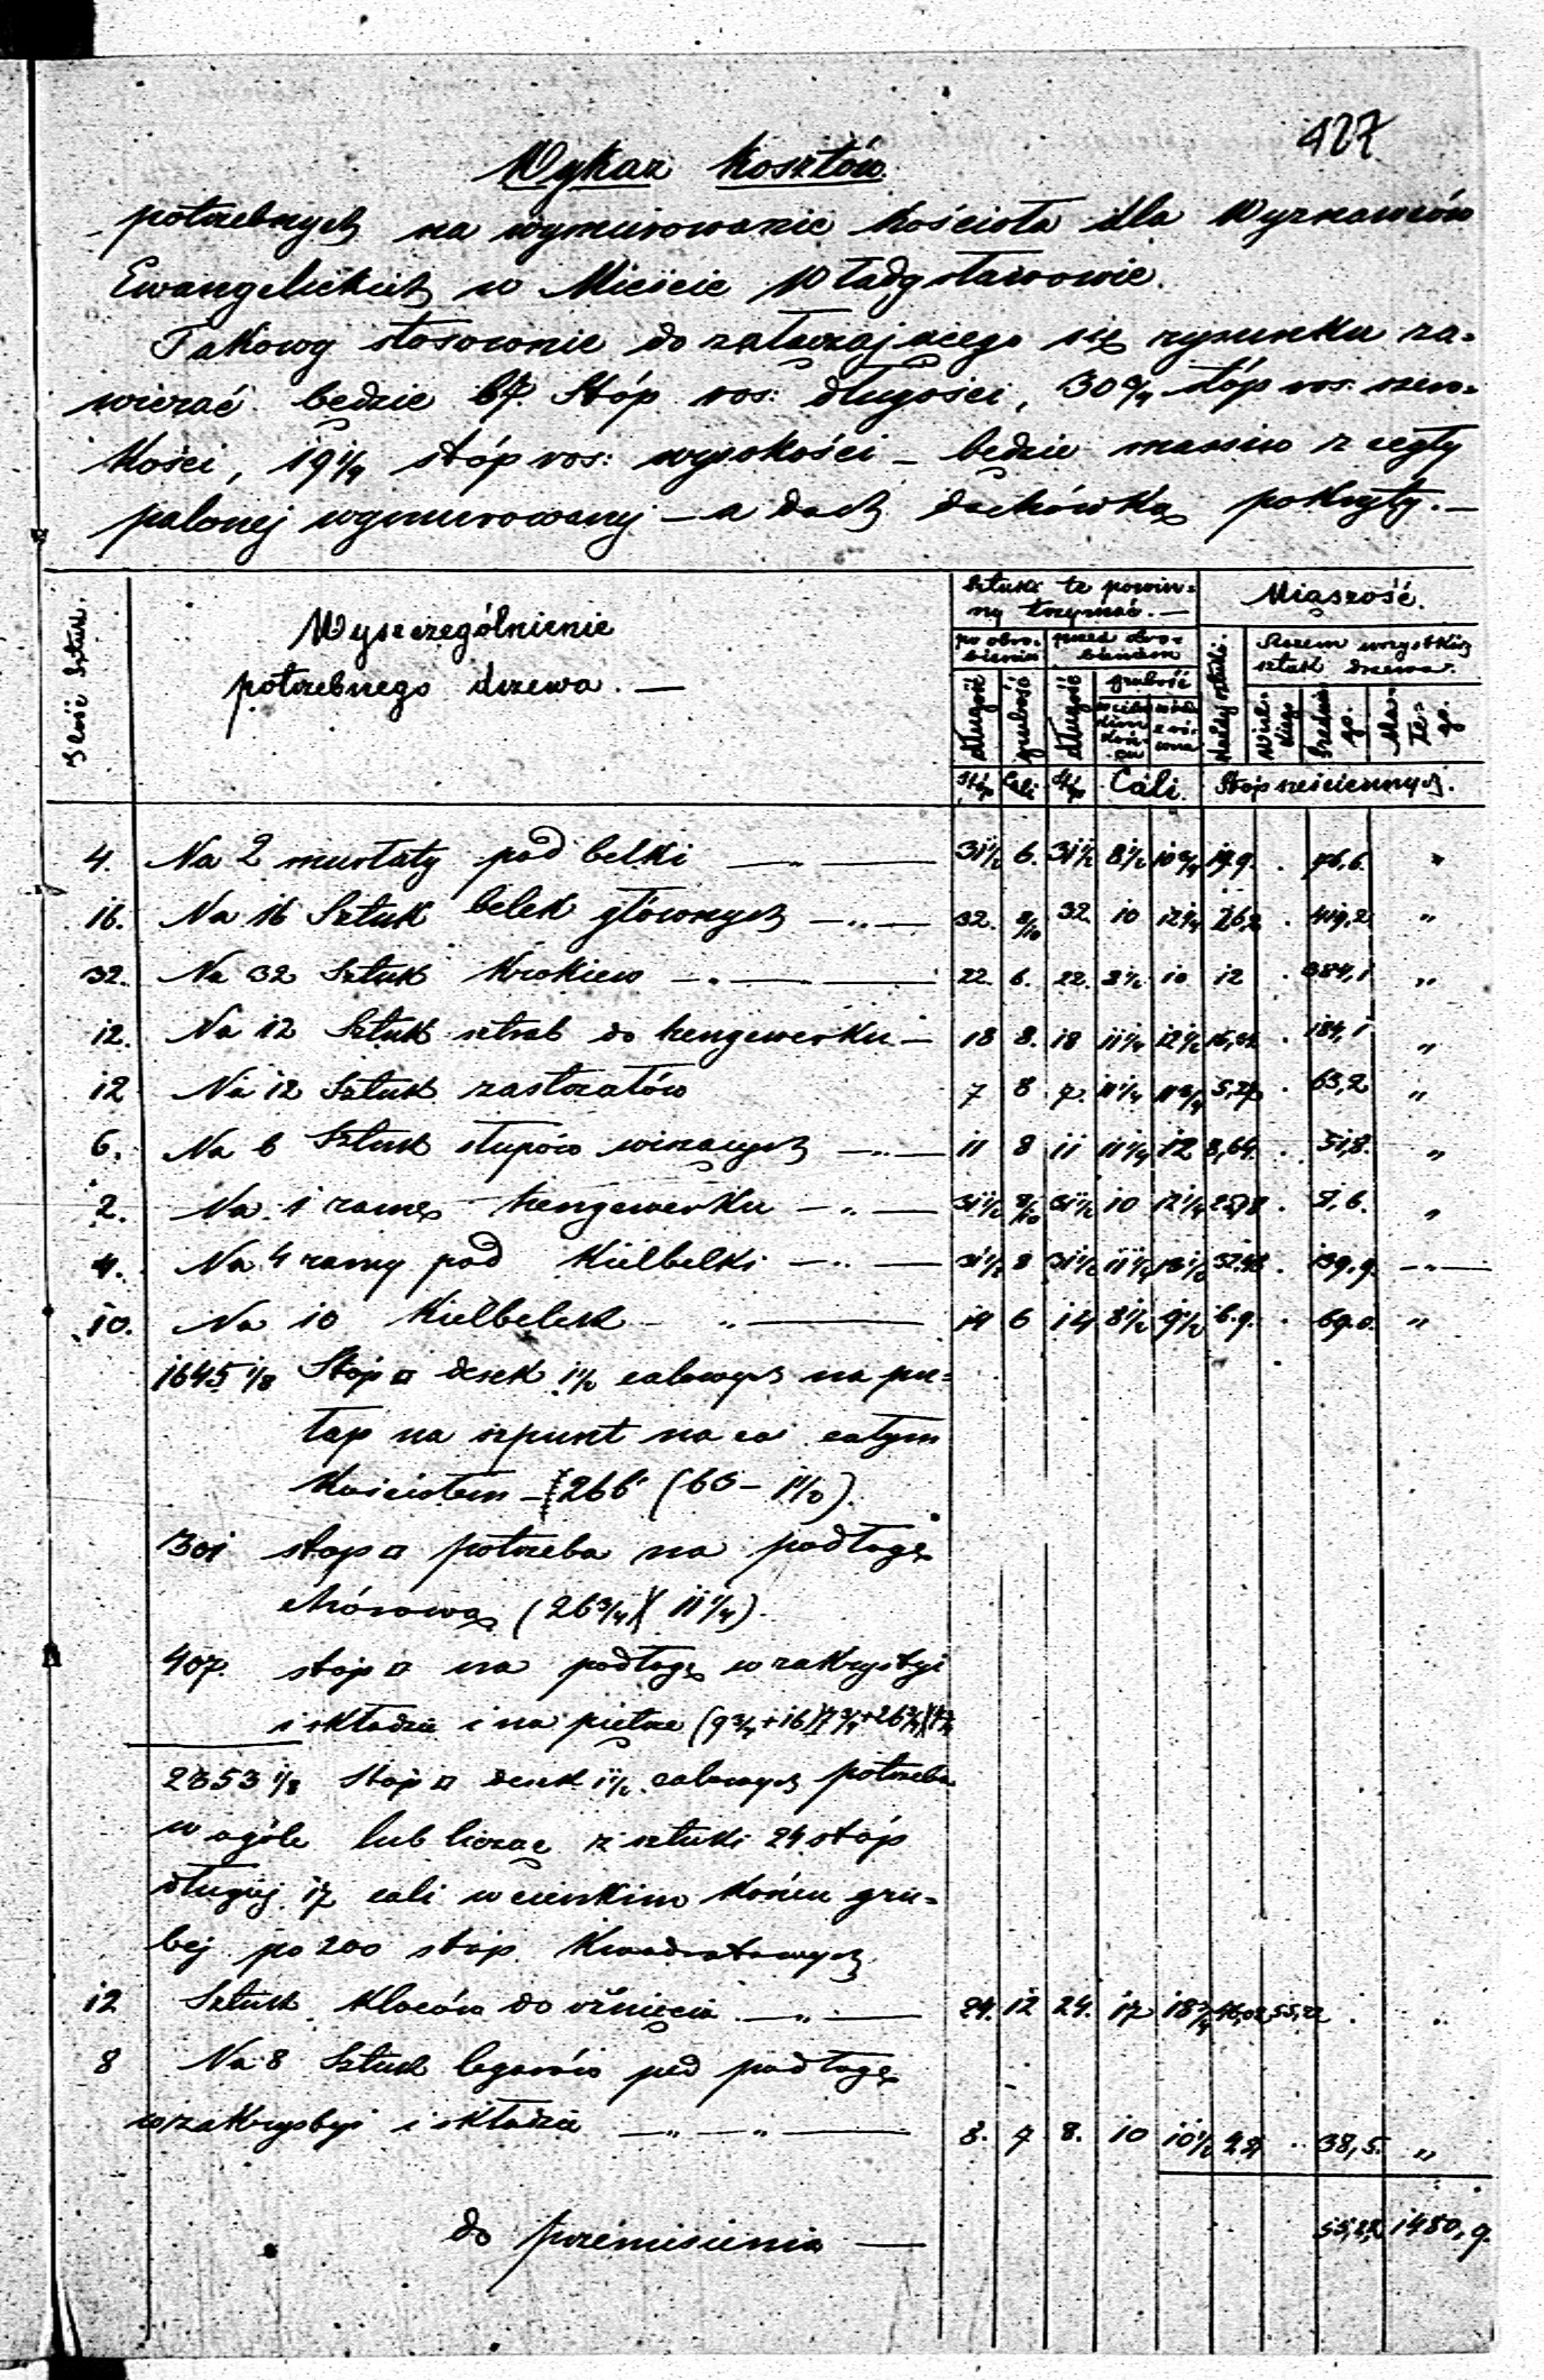 427
Wykaz Kosztów
potrzebnych na wymurowanie kościoła dla Wyznawców
Ewangelickich w Mieście Władysławowie.
Takowy stosownie do załączającego się rysunku za=
wierać będzie 67. Stóp ros: długości, 30 3/4 stóp ros: szero=
kości, 19 1/4 stóp ros: wysokości – będzie massiw z cegły
palonej wymurowany – a dach dachówką pokryty. –
Ilość Sztuk.
Wyszczególnienie
potrzebnego drzewa. —
Sztuki te powin=
ny trzymać. —
Miąszość.
po obro=
bieniu
przed obro=
bieniem
Razem wszystkich
sztuk drzewa.
długość
grubość
długość
grubość
w cień=
kim
koń=
cu
Każdej sztuki
Wiel=
kiego
Średnie=
go.
Ma=
łe=
go.
Stóp Cali Stóp Cali. Stóp sześciennych.
4. Na 2 murłaty pod belki — „ — 31 1/2 6. 31 1/2 8 1/2 10 3/4 19.9. . 76,6. „
16. Na 16 Sztuk belek głównych — „ — 32. 8/10 32. 10 12 1/4 26,2 . 419,2. „
32. Na 32 Sztuk Krokiew — „ — 22. 6. 22. 8 1/2 10 12 . 384,1 „
12. Na 12 Sztuk sztrab do hengewerku — 18 8. 18 11 1/4 12 1/2 . 184,1 „
12 Na 12 Sztuk zastrzałów 7 8 7. 11 1/4 11 3/4 5,27 . 63,2 „
6. Na 6 Sztuk słupów wiszących — „ — 11 8 11 11 1/4 12 8,64. . 51,8. „
2. Na 1 ramę hengewerku — „ — 31 1/2 8/10 31 1/2 10 12 1/4 . „
4. Na 4 ramy pod Kielbelki — „ — 31 1/2 8 31 1/2 11 1/4 . 139,9. — „ —
10. Na 10 Kielbelek — „ — 14 6 14 8 1/2 9 1/2 6.9. . 69.0. „
1645 1/8 Stóp □ desek 1 1/2 calowych na pu=
łap na szpunt nad całym
Kościołem –
301 stóp □ potrzeba na podłogę
chórową (26 3/4)(11 1/4).
407. stóp □ na podłogę w zakrystyi
i składzie i na piętrze (9 3/4 + 16)7 3/4 + 26 3/4)(
2353 1/8 Stóp □ desek 1 1/2 calowych potrzeba
w ogóle lub licząc z sztuki 24 stóp
długiej 17 cali w cieńkim końcu gru=
bej po 200 stóp Kwadratowych
12 Sztuk Kloców do rżnięcia. — „ — 24. 12 24. 17 18 3/4 46,02 . „
8 Na 8 Sztuk legarów pod podłogę
w zakrystyi i składzie — „ — „ — 8. 7 8. 10 10 1/2 . 38,5. „
do przeniesienia — 1480,9.